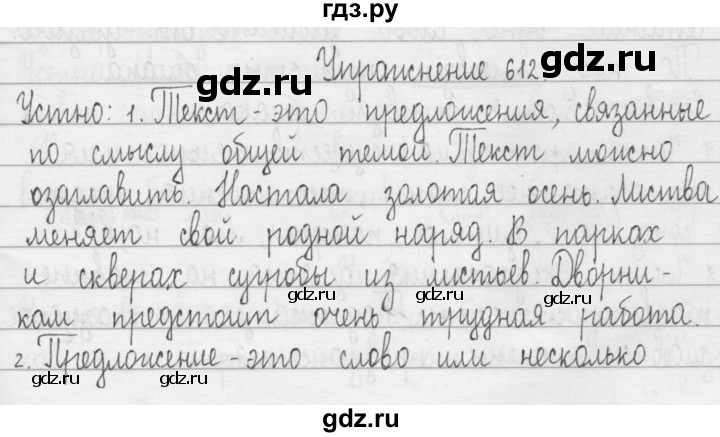 гдз.ру
Упражнение 612
gdz.ru
gdz.ru
Устно: 1. Текст это предложения, связанные
по смыслу общей темой. Текст можно
озаглавить. Настала золотая осень. Листва
меняет свой родной наряд. В парках
и скверах сугробы из листьев. Дворни-
gdz.ru
gdz.ru
кам предстоит очень трудная работа.
2. Предложение - это слово или несколько
gdz.ru
gdz.ru
gdz.ru